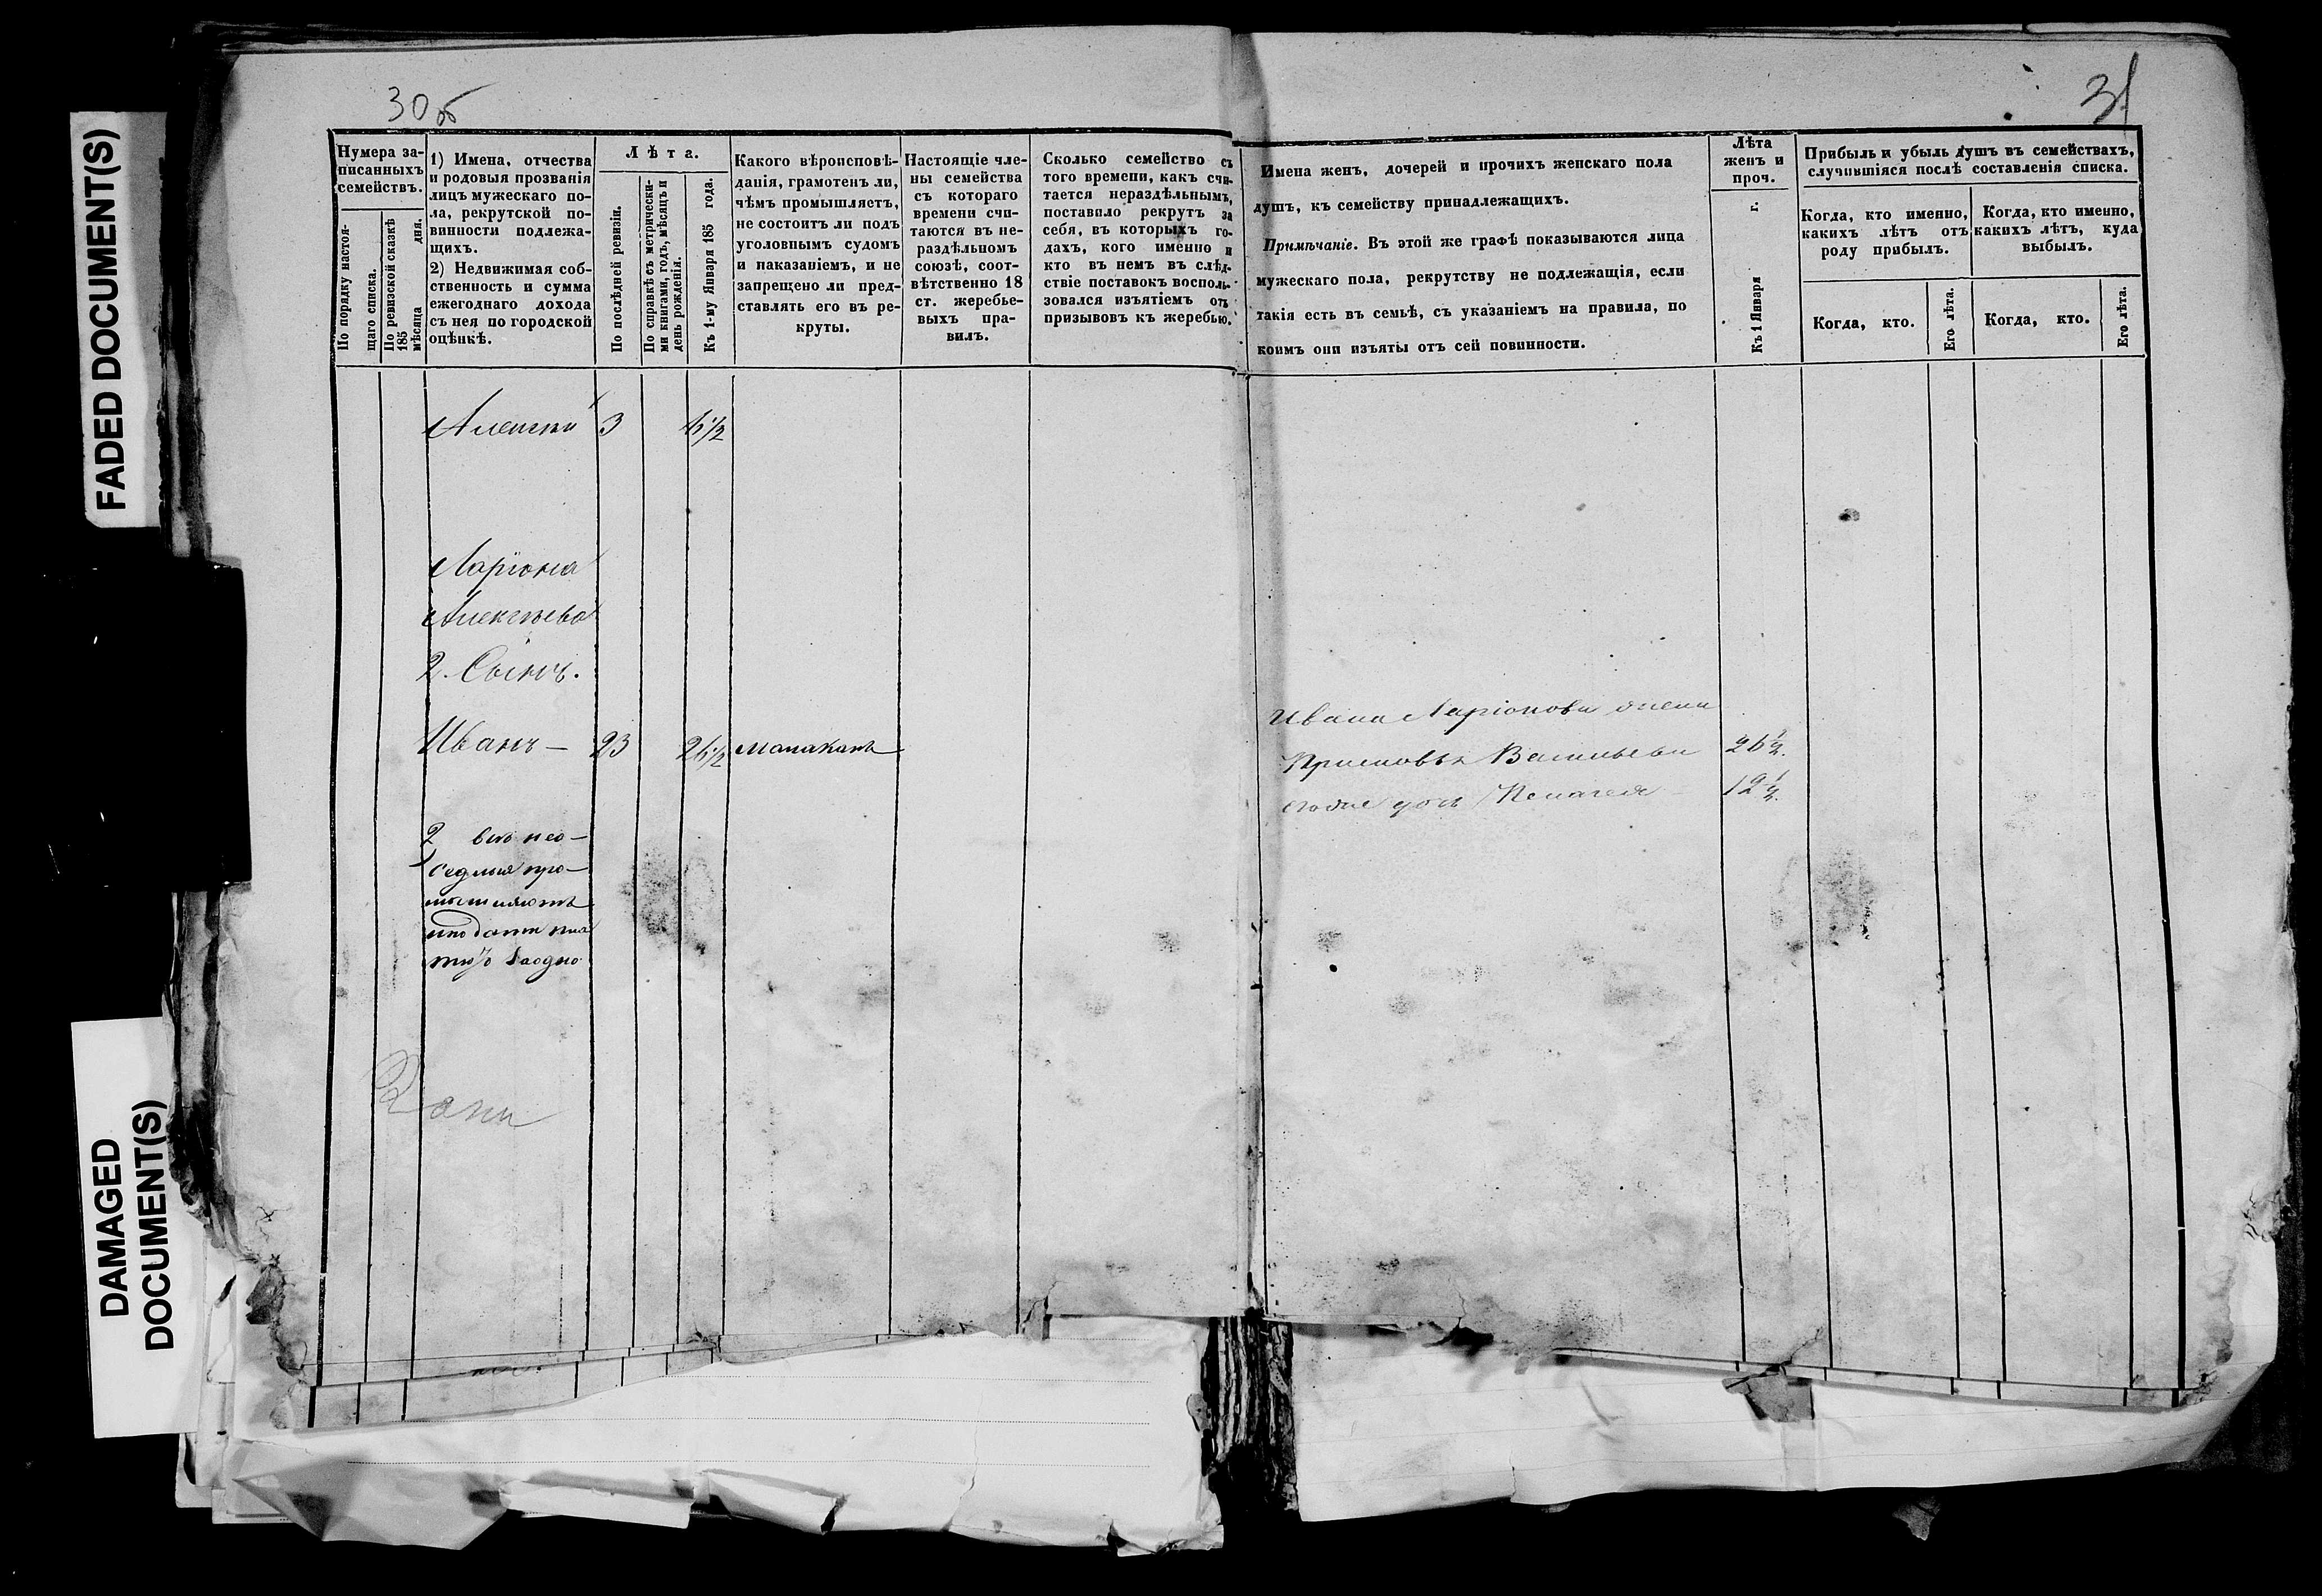 FADED DOCUMENT(S)
DAMAGED
DOCUMENT(S)
30 об
31
Нумера за-
писанныхъ
семействъ.
По порядку настоя-
щаго списка.
По ревизской сказкѣ
185 дня.
мѣсяца
1) Имена, отчества
и родовыя прозванія
лицъ мужескаго по-
ла, рекрутской по-
винности подлежа-
щихъ.
2) Недвижимая соб-
ственность и сумма
ежегоднаго дохода
съ нея по городской
оцѣнкѣ.
Лѣта.
По послѣдней ревизіи.
По справкѣ съ метрически-
ми книгами, годъ, мѣсяцъ и
день рожденія.
Къ 1-му Января 185 года.
Какого вѣроисповѣ-
данія, грамотенъ ли,
чѣмъ промышляетъ,
не состоитъ ли подъ
уголовнымъ судомъ
и наказаніемъ, и не
запрещено ли пред-
ставлять его въ ре-
круты.
Настоящіе чле-
ны семейства
съ котораго
времени счи-
таются въ не-
раздѣльномъ
союзѣ, соот-
вѣтственно 18
ст. жеребье-
выхъ пра-
вилъ.
Сколько семейство съ
того времени, какъ счи-
тается нераздѣльнымъ,
поставило рекрутъ за
себя, въ которыхъ го-
дахъ, кого именно и
кто въ немъ въ слѣд-
ствіе поставокъ восполь-
зовался изъятіемъ отъ
призывовъ къ жеребью.
Имена женъ, дочерей и прочихъ женскаго пола
душъ, къ семейству принадлежащихъ.
Примѣчаніе. Въ этой же графѣ показываются лица
мужескаго пола, рекрутству не подлежащія, если
такія есть въ семьѣ, съ указаніемъ на правила, по
коимъ они изъяты отъ сей повинности.
Лѣта
женъ и
проч.
Къ 1 Января г.
Прибыль и убыль душъ въ семействахъ,
случившіяся послѣ составленія списка.
Когда, кто именно,
какихъ лѣтъ отъ
роду прибылъ.
Когда, кто именно,
какихъ лѣтъ, куда
выбылъ.
Когда, кто.
Его лѣта.
Когда, кто.
Его лѣта.
Алексѣй 3 6 1/2
Ларіона
Алексѣева
2. Сынъ.
Иванъ — 23 26 1/2
Ивана Ларіонова жена
Васильева 26 1/2.
его же дочь Пелагея 12 1/2.
2 всѣ нео-
седлыя про-
мышляютъ